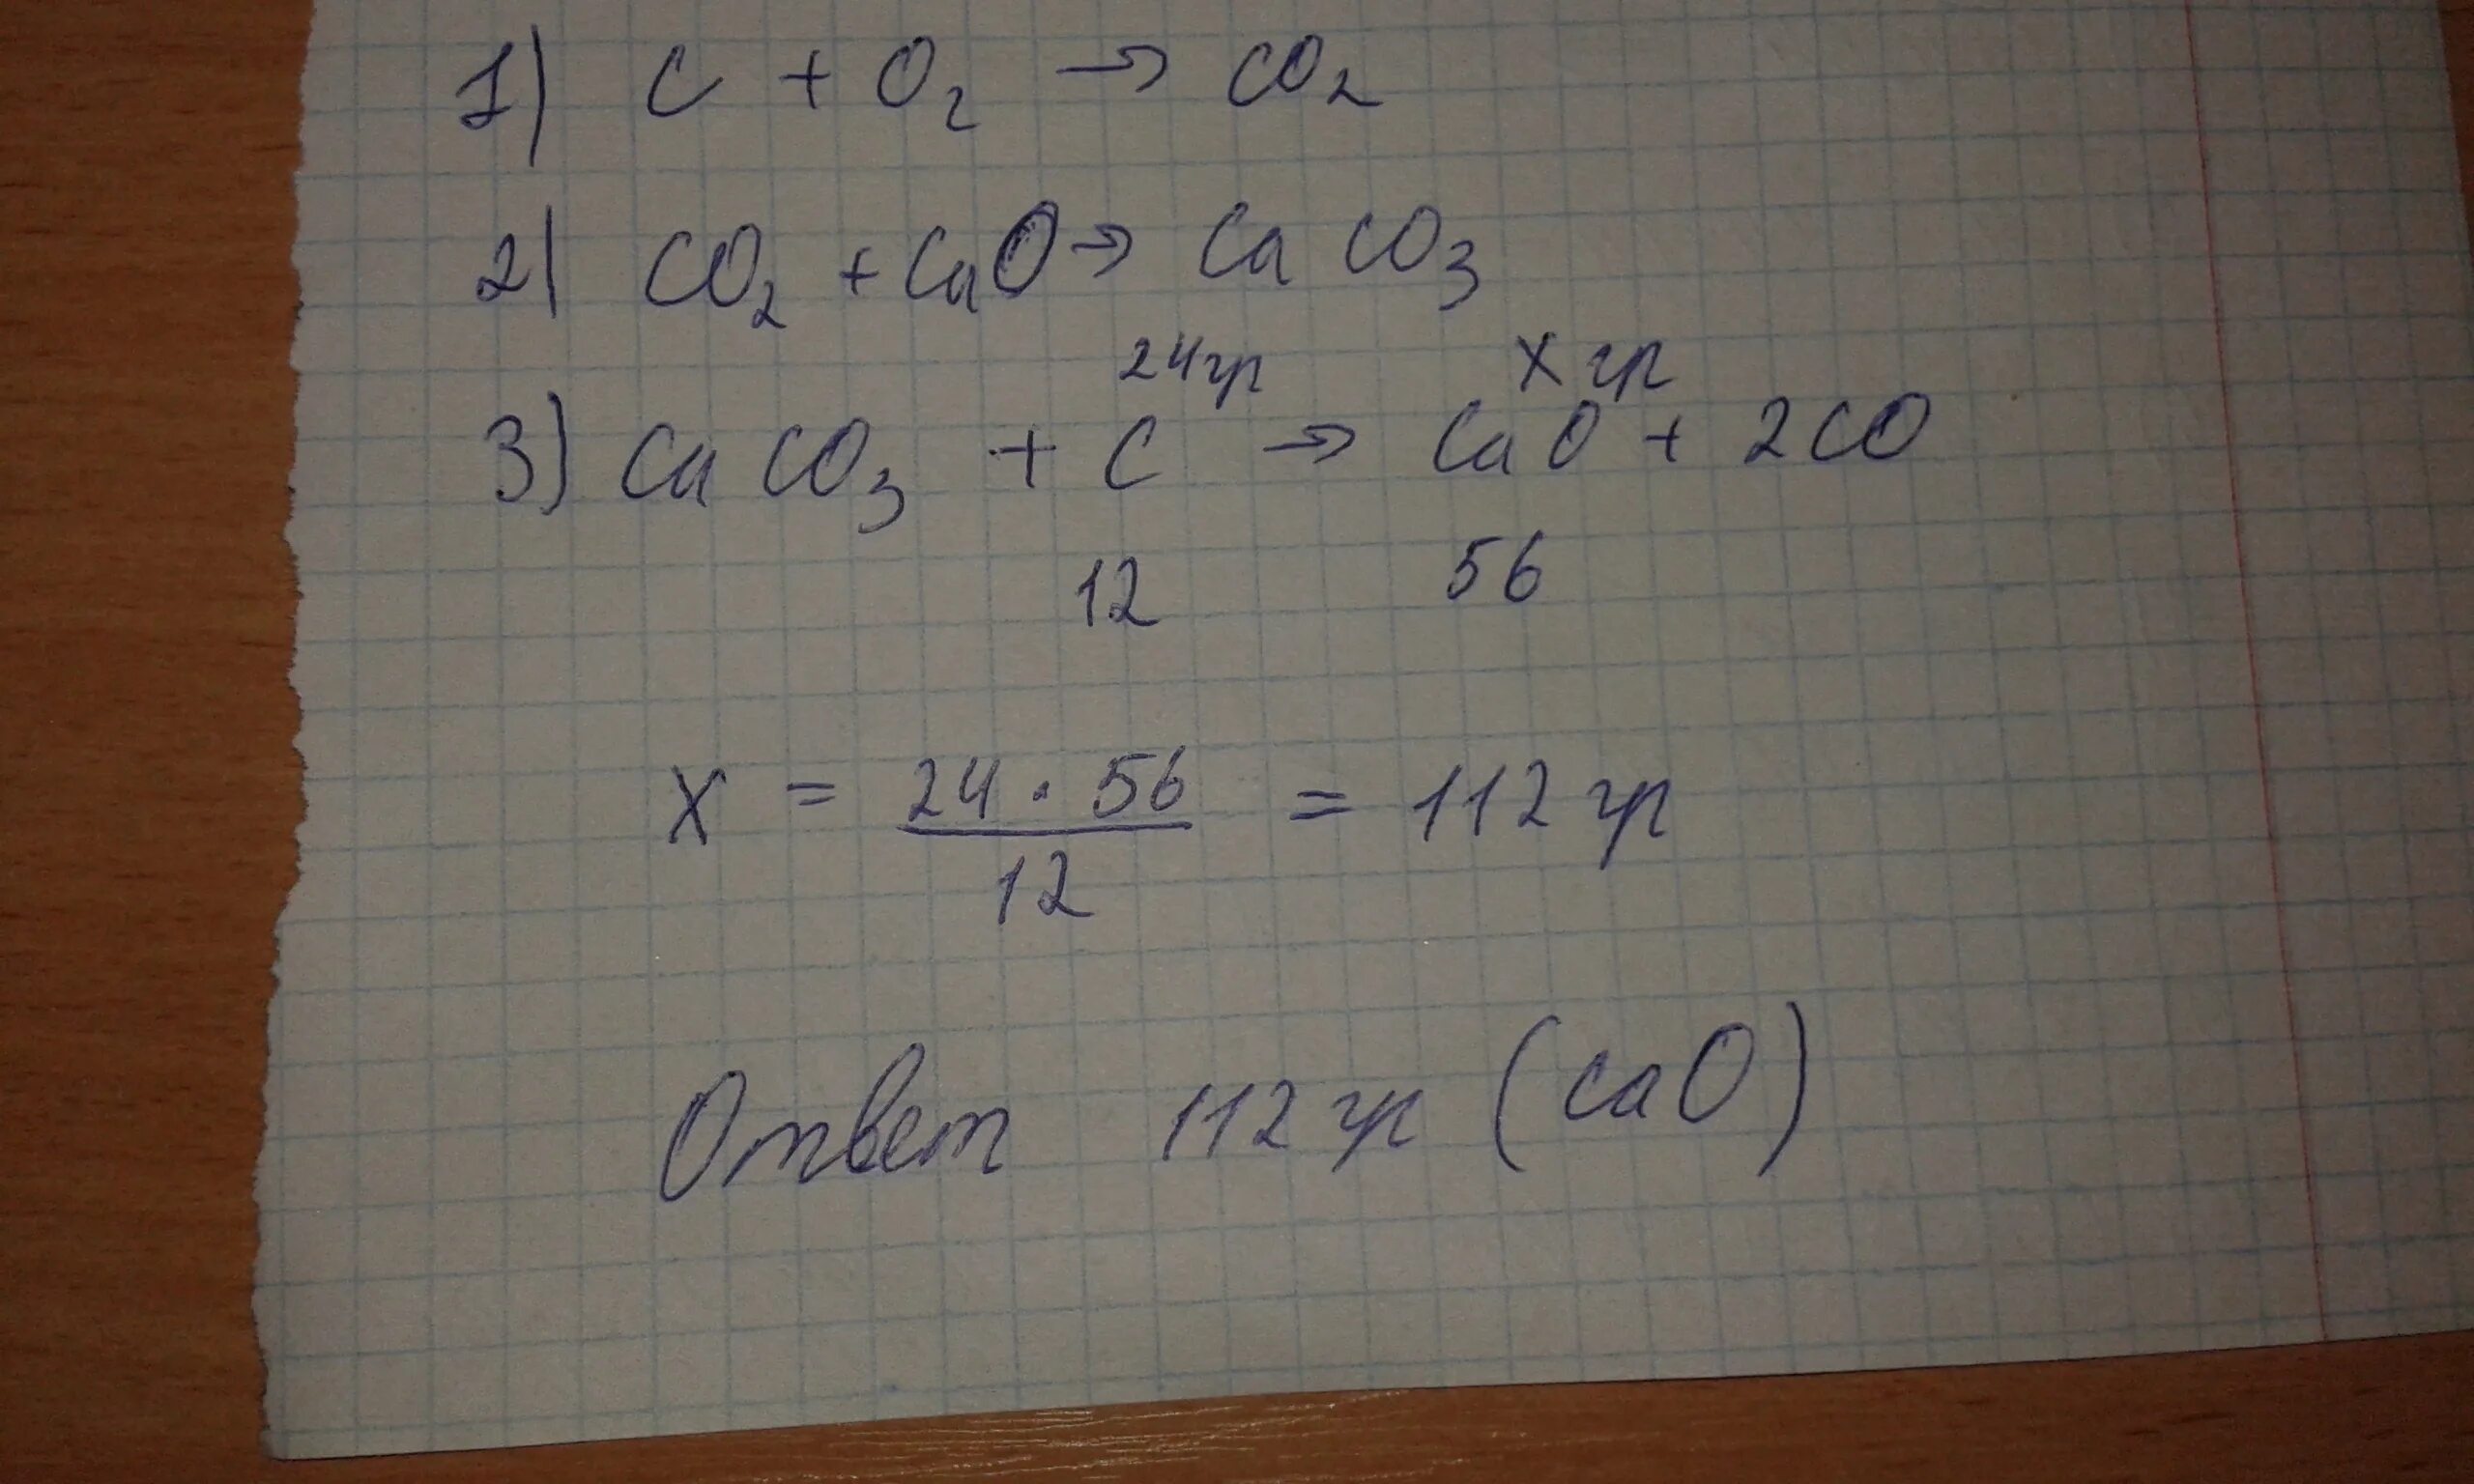 1) C + O₂ → CO₂
2) CO₂ + CaO → CaCO₃
24 гр X гр
3) CaCO₃ + C → CaO + 2CO
12 56
X = 24 · 56 / 12 = 112 гр
Ответ 112 гр (CaO)